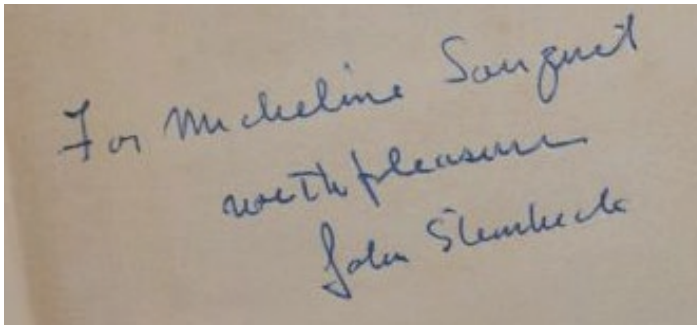 For Micheline Sanguet
with pleasure
John Steinbeck